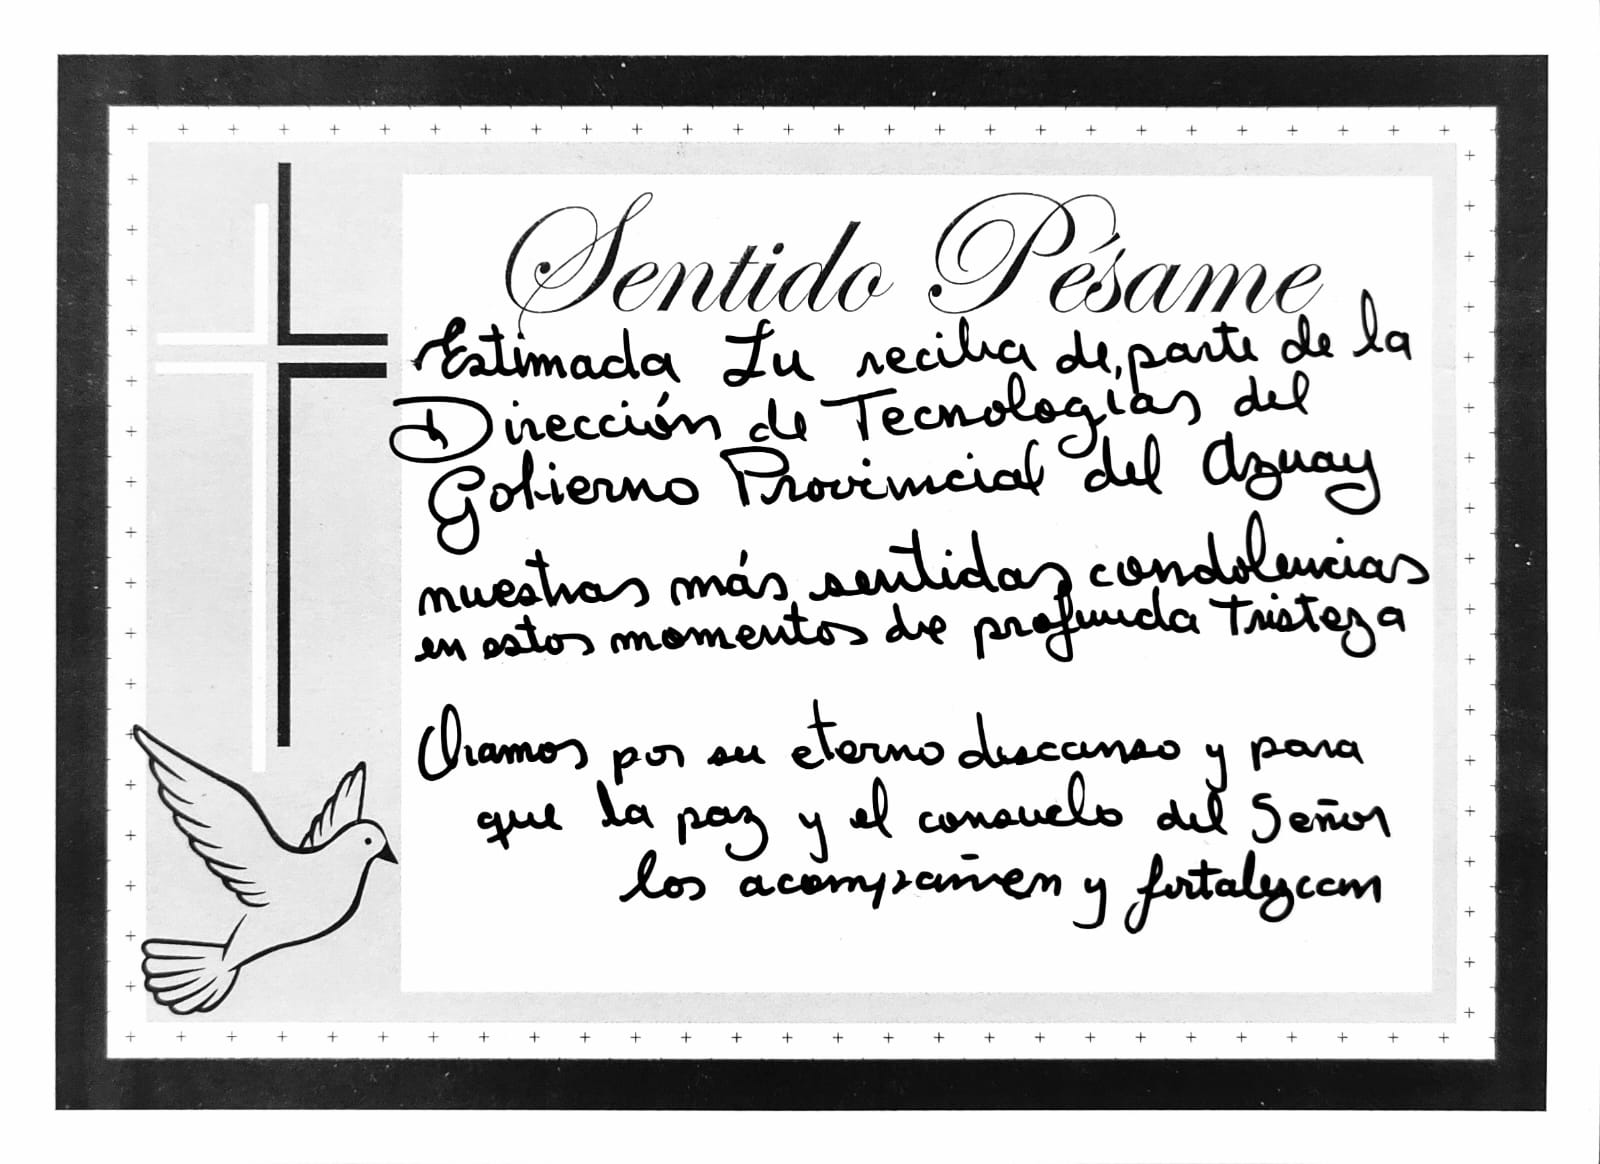 Sentido Pésame
Estimada Lu reciba de parte de la
Dirección de Tecnologías del
Gobierno Provincial del Azuay
nuestras más sentidas condolencias
en estos momentos de profunda Tristeza
Oramos por su eterno descanso y para
que la paz y el consuelo del Señor
los acompañen y fortalezcan